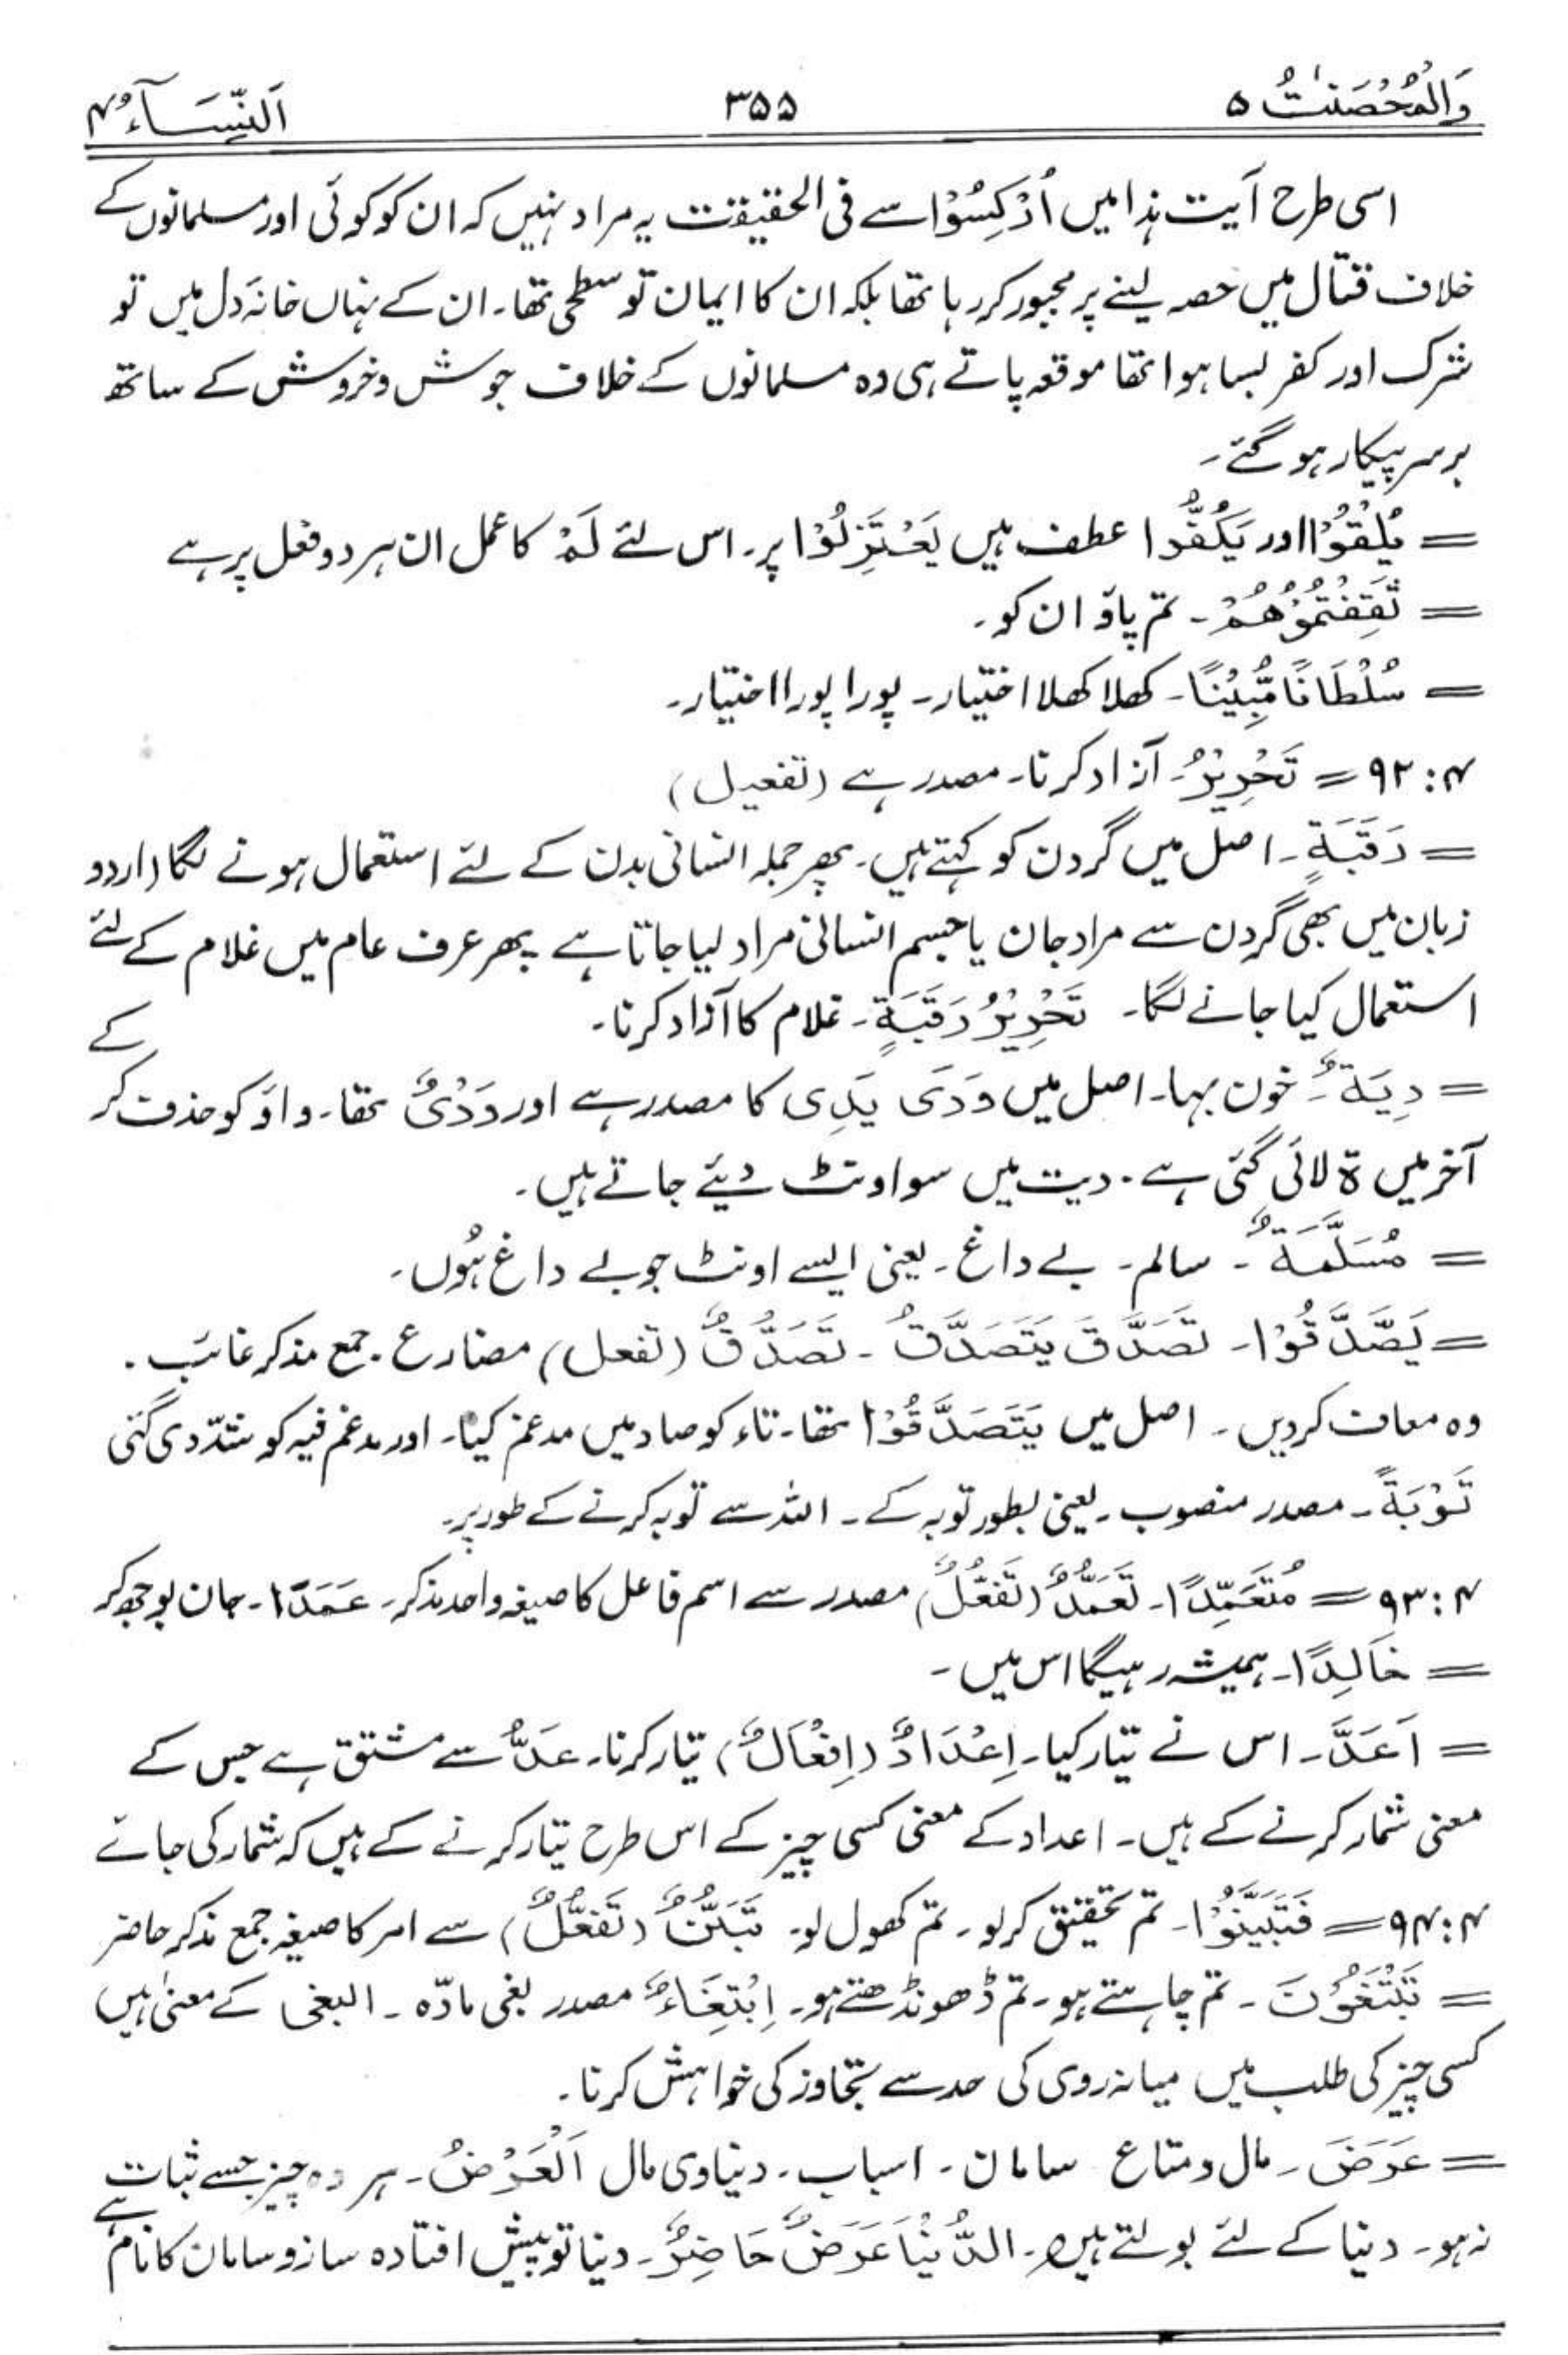 وَالْمُحْصَنٰتُ ۵
۳۵۵
اَلنِّسَآءُ ۴
اسی طرح آیت ہذا میں اُرْكِسُوْا سے فی الحقیقت یہ مراد نہیں کہ ان کو کوئی اور مسلمانوں کے
خلاف قتال میں حصہ لینے پر مجبور کر رہا تھا بلکہ ان کا ایمان تو سطحی تھا۔ ان کے نہاں خانۂ دل میں تو
شرک اور کفر بسا ہوا تھا موقعہ پاتے ہی وہ مسلمانوں کے خلاف جوش و خروش کے ساتھ
برسر پیکار ہو گئے۔
= يُلْقُوْا اور يَكُفُّوْا عطف ہیں يَعْتَزِلُوْا پر۔ اس لئے لَمْ کا عمل ان ہر دو فعل پر ہے
= ثَقِفْتُمُوْهُمْ۔ تم پاؤ ان کو۔
= سُلْطَانًا مُّبِيْنًا۔ کھلا کھلا اختیار۔ پورا پورا اختیار۔
۴:۹۲ = تَحْرِيْرُ۔ آزاد کرنا۔ مصدر ہے (تفعیل)
= رَقَبَةٍ۔ اصل میں گردن کو کہتے ہیں۔ پھر جملہ انسانی بدن کے لئے استعمال ہونے لگا (اردو
زبان میں بھی گردن سے مراد جان یا جسم انسانی مراد لیا جاتا ہے پھر عرف عام میں غلام کے لئے
استعمال کیا جانے لگا۔ تَحْرِيْرُ رَقَبَةٍ۔ غلام کا آزاد کرنا۔
= دِيَةٌ۔ خون بہا۔ اصل میں وَدَى يَدِى کا مصدر ہے اور وَدْىٌ تھا۔ واؤ کو حذف کر کے
آخر میں ۃ لائی گئی ہے۔ دیت میں سو اونٹ دیئے جاتے ہیں۔
= مُسَلَّمَةٌ۔ سالم۔ بے داغ۔ یعنی ایسے اونٹ جو بے داغ ہوں۔
= يَصَّدَّقُوْا۔ تَصَدَّقَ يَتَصَدَّقُ۔ تَصَدُّقٌ (تفعل) مضارع۔ جمع مذکر غائب۔
وہ معاف کر دیں۔ اصل میں يَتَصَدَّقُوْا تھا۔ تاء کو صاد میں مدغم کیا۔ اور مدغم فیہ کو شدّ دی گئی
تَوْبَةً۔ مصدر منصوب۔ یعنی بطور توبہ کے۔ اللہ سے توبہ کرنے کے طور پر۔
۴:۹۳ = مُتَعَمِّدًا۔ تَعَمُّدٌ (تَفَعُّلٌ) مصدر سے اسم فاعل کا صیغہ واحد مذکر۔ عَمَدًا۔ جان بوجھ کر
= خَالِدًا۔ ہمیشہ رہیگا اس میں۔
= اَعَدَّ۔ اس نے تیار کیا۔ اِعْدَادٌ (اِفْعَالٌ) تیار کرنا۔ عَدٌّ سے مشتق ہے جس کے
معنی شمار کرنے کے ہیں۔ اعداد کے معنی کسی چیز کے اس طرح تیار کرنے کے ہیں کہ شمار کی جائے
۴:۹۴ = فَتَبَيَّنُوْا۔ تم تحقیق کر لو۔ تم کھول لو۔ تَبَيُّنٌ (تَفَعُّلٌ) سے امر کا صیغہ جمع مذکر حاضر
= تَبْتَغُوْنَ۔ تم چاہتے ہو۔ تم ڈھونڈھتے ہو۔ اِبْتِغَاءٌ مصدر بغی مادّہ۔ البغی کے معنیٰ ہیں
کسی چیز کی طلب میں میانہ روی کی حد سے تجاوز کی خواہش کرنا۔
= عَرَضَ۔ مال و متاع سامان۔ اسباب۔ دنیاوی مال اَلْعَرْضُ۔ ہر وہ چیز جسے ثبات
نہ ہو۔ دنیا کے لئے بولتے ہیں۔ الدُّنْيَا عَرَضٌ حَاضِرٌ۔ دنیا تو پیش افتادہ ساز و سامان کا نام ہے